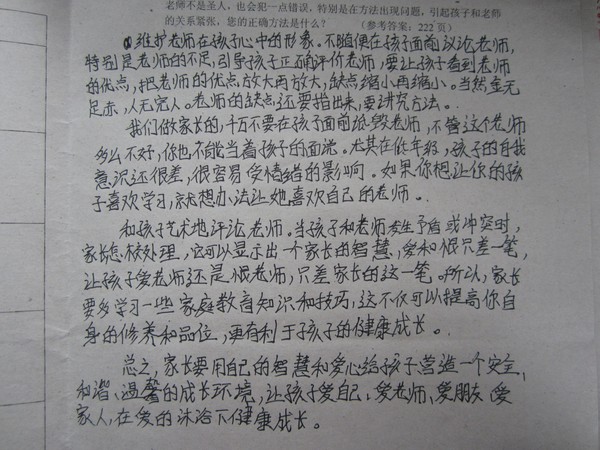 老师不是圣人，也会犯一点错误，特别是在方法出现问题，引起孩子和老师
的关系紧张，您的正确方法是什么？（参考答案：222页）
维护老师在孩子心中的形象。不随便在孩子面前议论老师，
特别是老师的不足，引导孩子正确评价老师，要让孩子看到老师
的优点，把老师的优点放大再放大，缺点缩小再缩小。当然金无
足赤，人无完人。老师的缺点还要指出来，要讲究方法。
我们做家长的，千万不要在孩子面前诋毁老师，不管这个老师
多么不好，你也不能当着孩子的面说。尤其在低年级，孩子的自我
意识还很差，很容易受情绪的影响。如果你想让你的孩
子喜欢学习，就想办法让她喜欢自己的老师。
和孩子艺术地评论老师。当孩子和老师发生矛盾或冲突时，
家长怎样处理，它可以显示出一个家长的智慧，爱和恨只差一笔，
让孩子爱老师还是恨老师，只差家长的这一笔。所以，家长
要多学习一些家庭教育知识和技巧，这不仅可以提高你自
身的修养和品位，更有利于孩子的健康成长。
总之，家长要用自己的智慧和爱心给孩子营造一个安全、
和谐、温馨的成长环境，让孩子爱自己、爱老师、爱朋友、爱
家人，在爱的沐浴下健康成长。